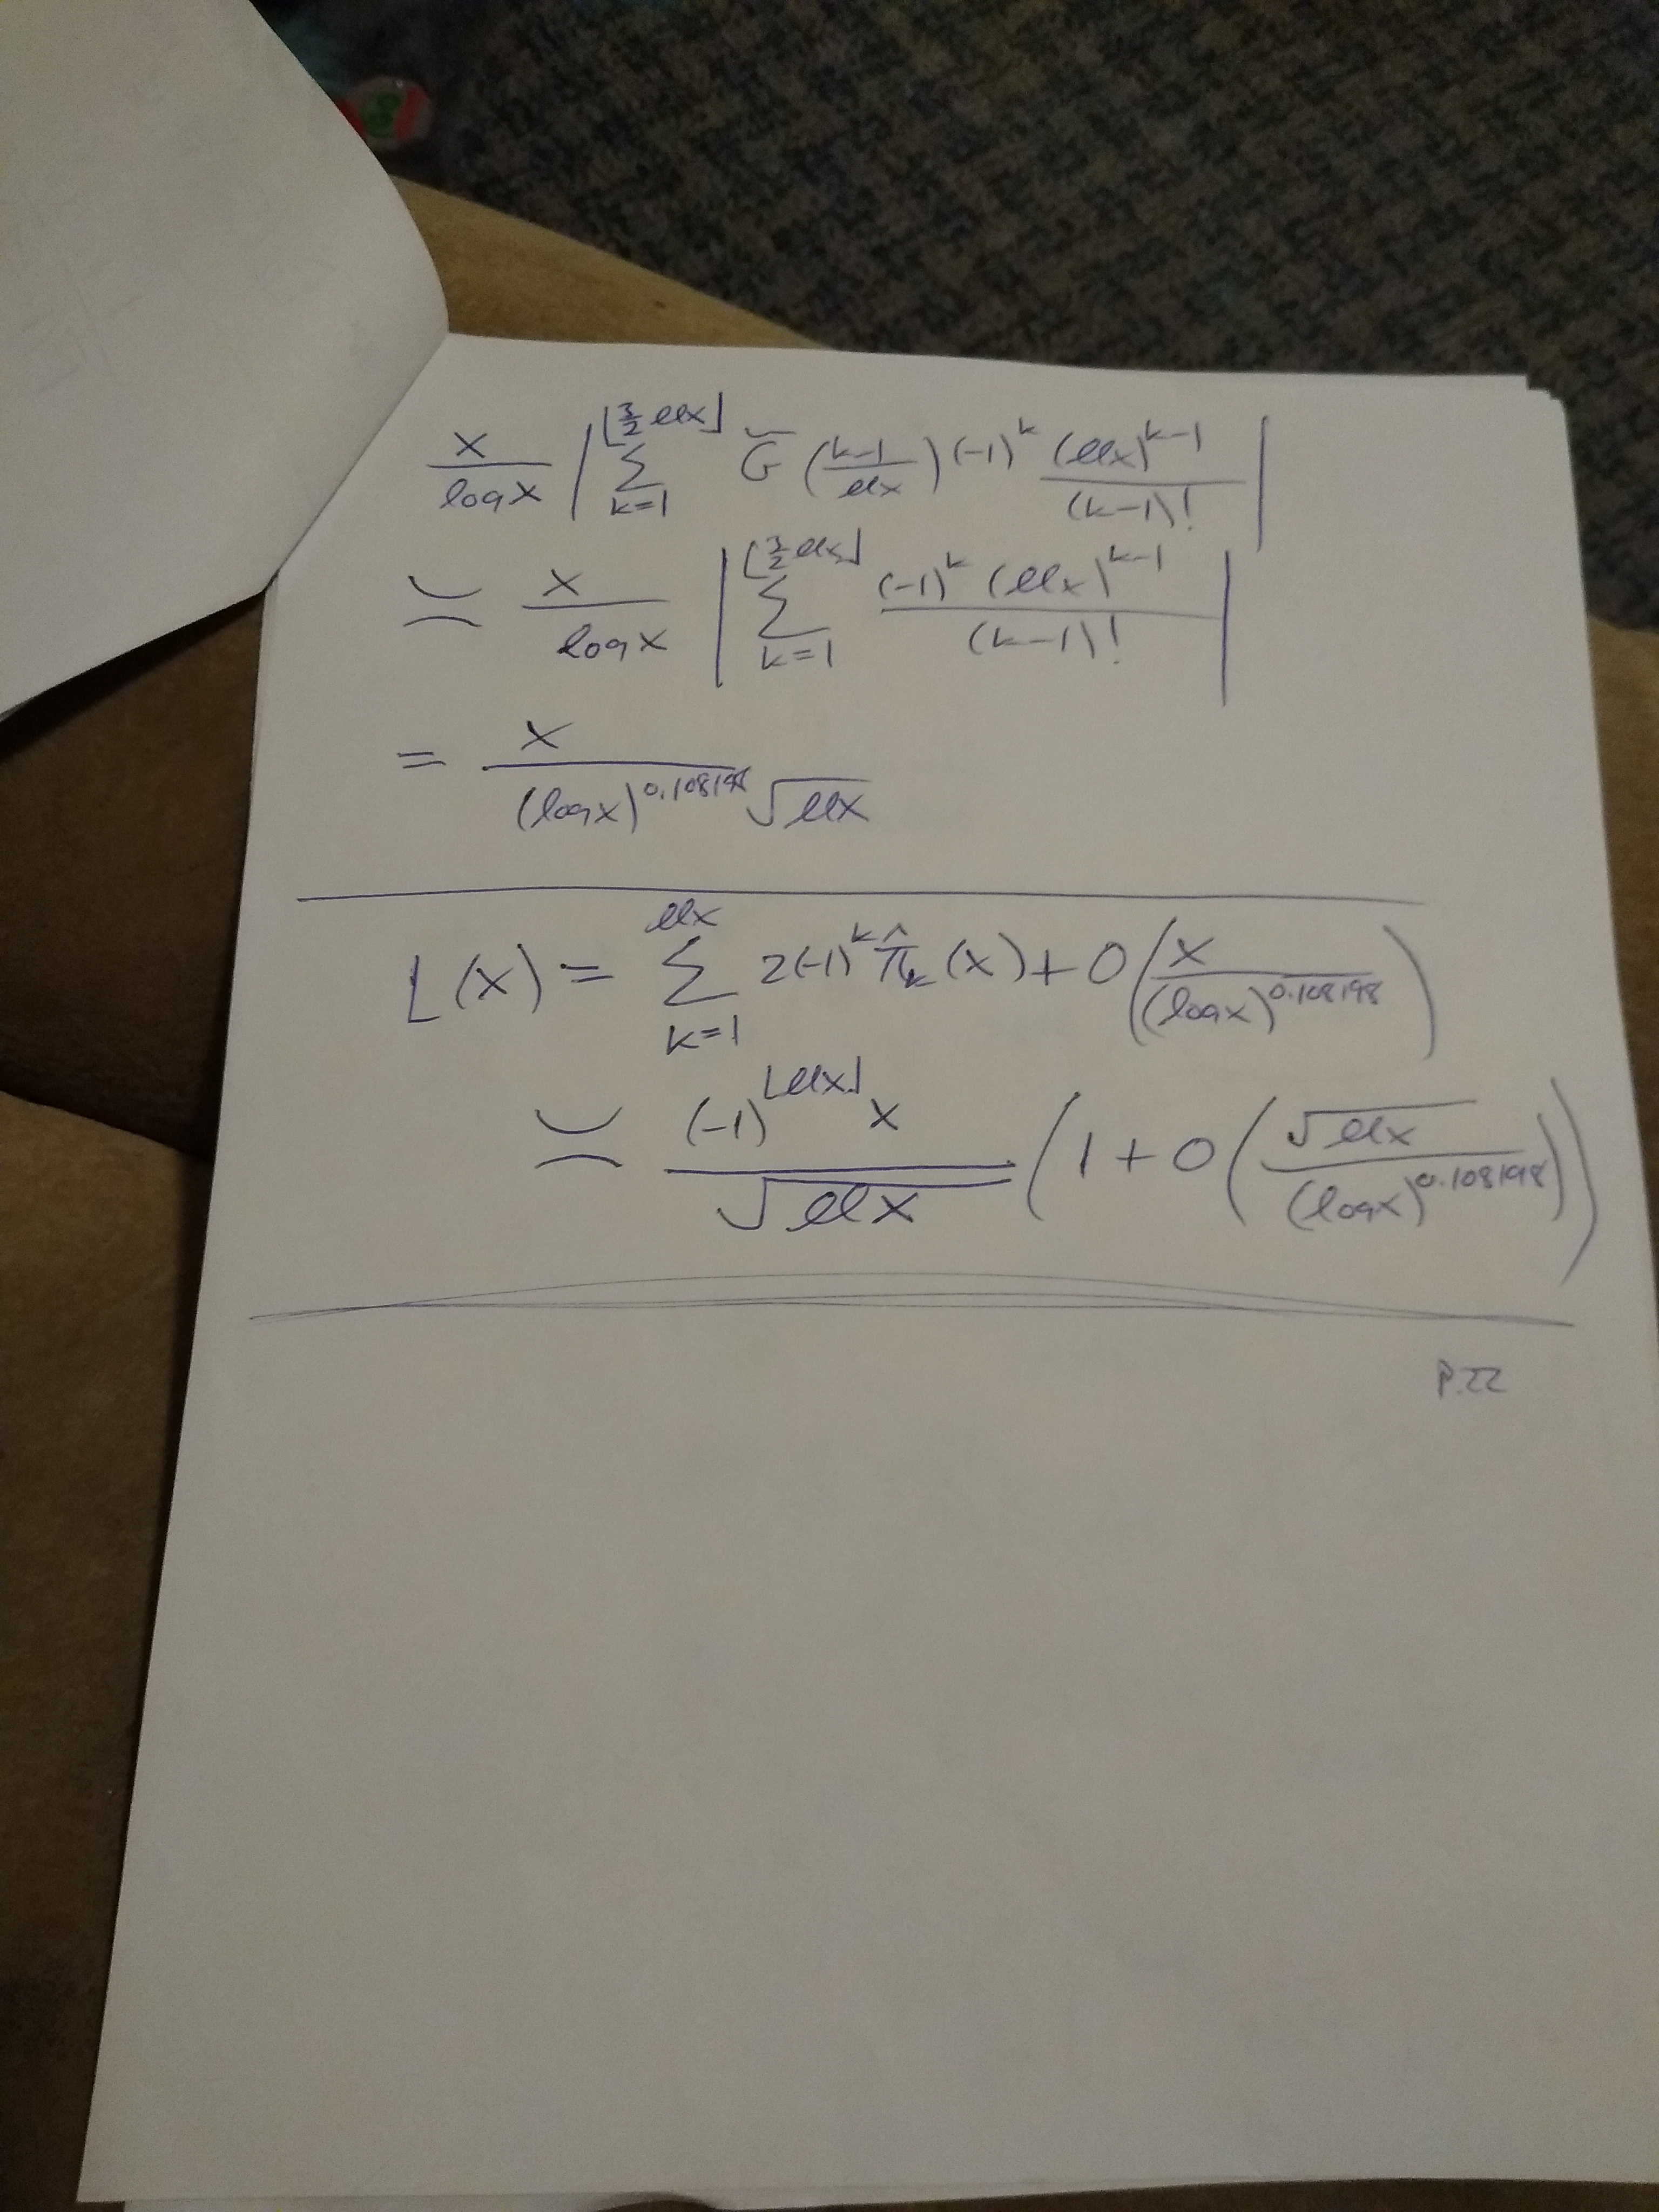 x/log x |∑_{k=1}^{⌊3/2 llx⌋} G̃ ((k-1)/llx) (-1)^k (llx)^{k-1}/(k-1)!|
≍ x/log x |∑_{k=1}^{⌊3/2 llx⌋} (-1)^k (llx)^{k-1}/(k-1)!|
= x/((log x)^{0.108198} √llx)
L(x) = ∑_{k=1}^{llx} 2(-1)^k π̂_k(x) + O(x/(log x)^{0.108198})
≍ (-1)^{⌊llx⌋} x/√llx (1 + O(√llx/(log x)^{0.108198}))
P.22